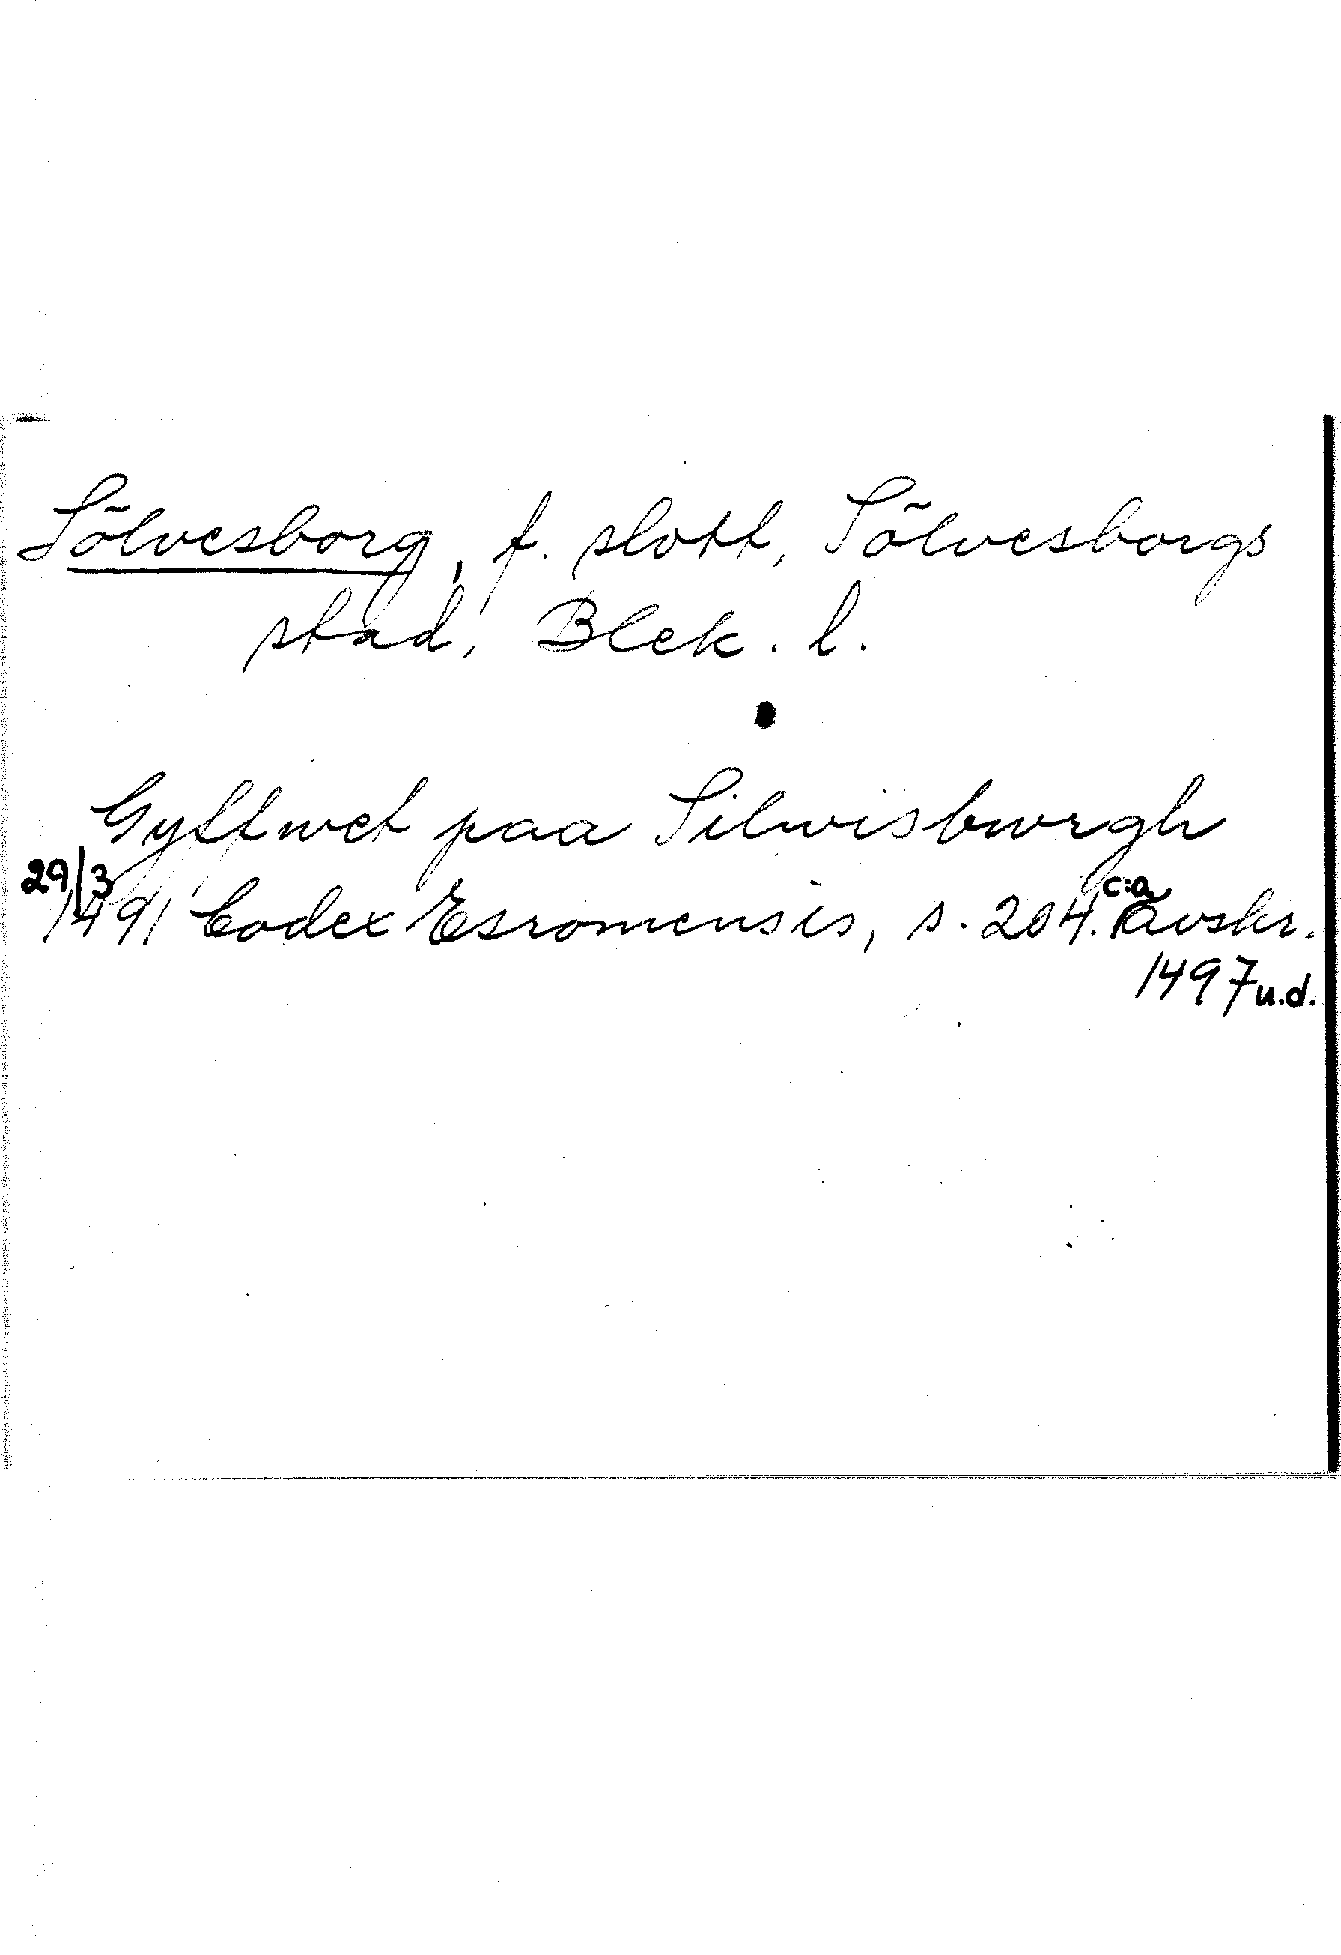 Sölvesborg, f. slott, Sölvesborgs
stad, Blek. l.
Gyffwet paa Silwisbwrgh
29/3
1491 Codex Esromensis, s. 204. c:a Avskr.
1497 u.d.